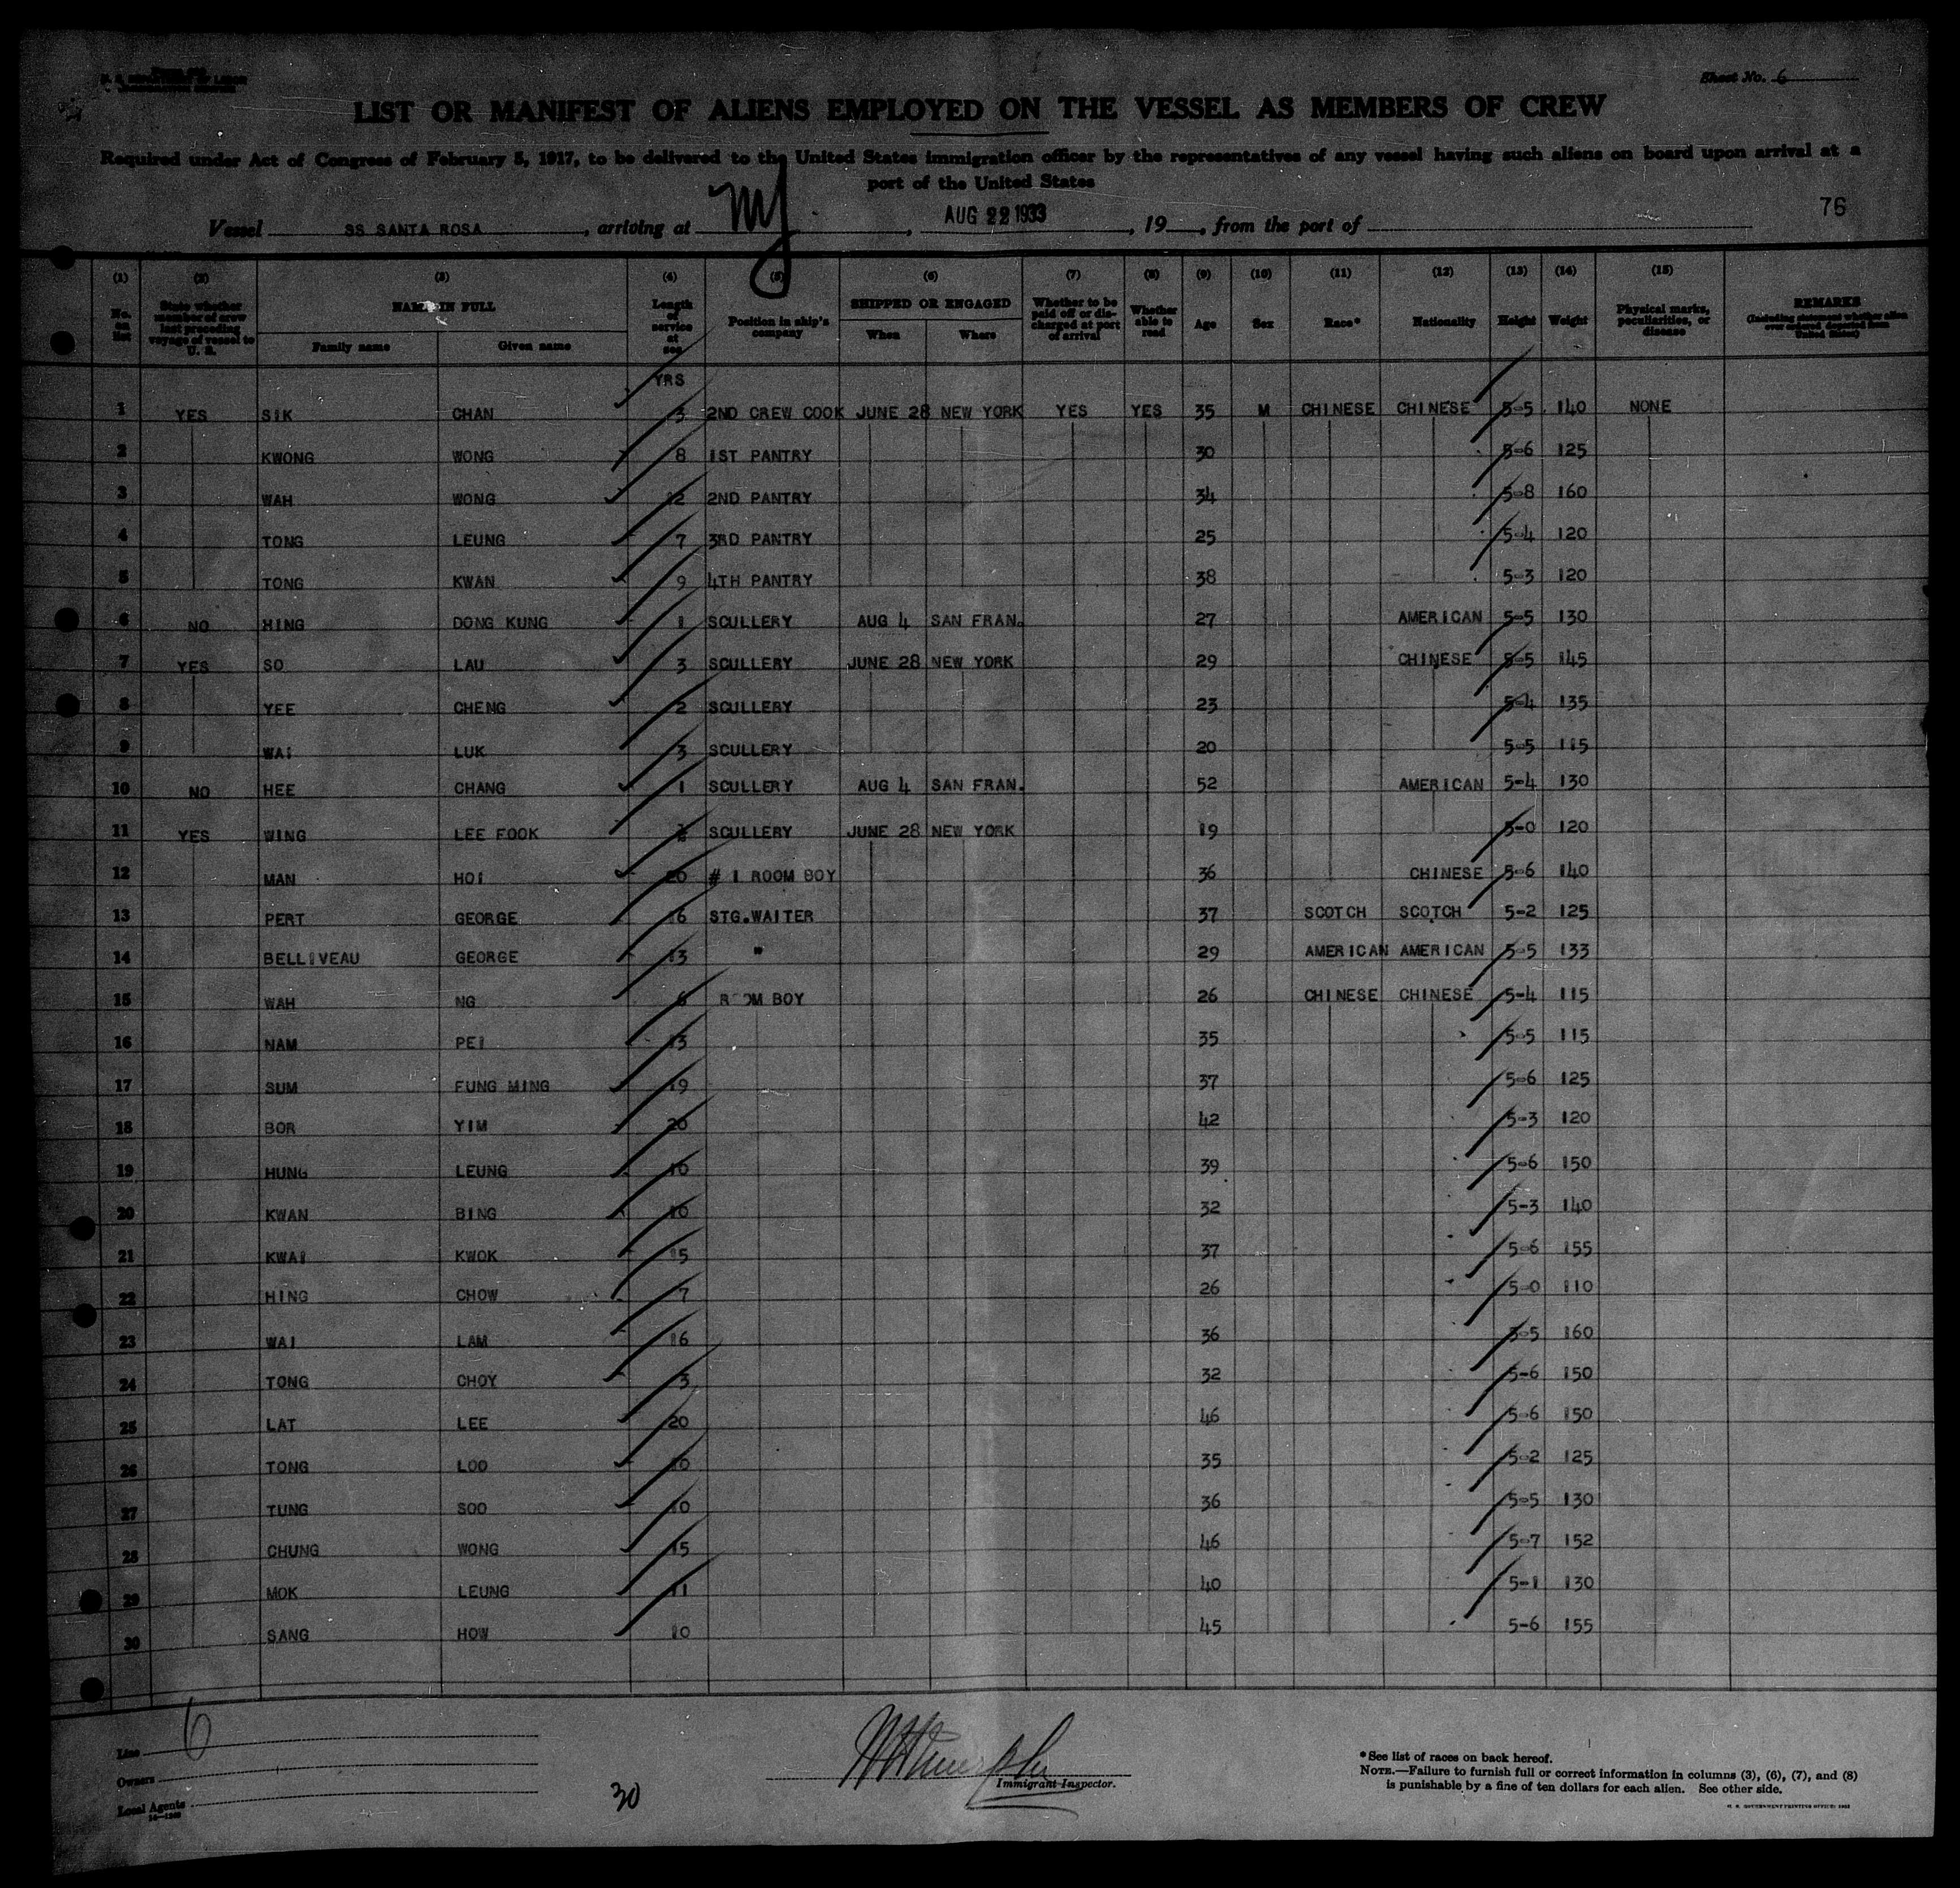 U. S. DEPARTMENT OF LABOR
Sheet No. 6
LIST OR MANIFEST OF ALIENS EMPLOYED ON THE VESSEL AS MEMBERS OF CREW
Required under Act of Congress of February 5, 1917, to be delivered to the United States immigration officer by the representatives of any vessel having such aliens on board upon arrival at a
port of the United States
76
Vessel SS SANTA ROSA, arriving at NY, AUG 22 1933, 19, from the port of
(1) (2) (3) (4) (5) (6) (7) (8) (9) (10) (11) (12) (13) (14) (15)
No. on list State whether member of crew last preceding voyage of vessel to U. S. NAME IN FULL Family name Given name Length of service at sea Position in ship's company SHIPPED OR ENGAGED When Where Whether to be paid off or discharged at port of arrival Whether able to read Age Sex Race* Nationality Height Weight Physical marks, peculiarities, or disease REMARKS (Including statement whether alien ever ordered deported from United States)
YRS
1 YES SIK CHAN 3 2ND CREW COOK JUNE 28 NEW YORK YES YES 35 M CHINESE CHINESE 5-5 140 NONE
2 KWONG WONG 8 1ST PANTRY 30 5-6 125
3 WAH WONG 12 2ND PANTRY 34 5-8 160
4 TONG LEUNG 7 3RD PANTRY 25 5-4 120
5 TONG KWAN 9 4TH PANTRY 38 5-3 120
6 NO HING DONG KUNG 1 SCULLERY AUG 4 SAN FRAN. 27 AMERICAN 5-5 130
7 YES SO LAU 3 SCULLERY JUNE 28 NEW YORK 29 CHINESE 5-5 145
8 YEE CHENG 2 SCULLERY 23 5-4 135
9 WAI LUK 3 SCULLERY 20 5-5 115
10 NO HEE CHANG 1 SCULLERY AUG 4 SAN FRAN. 52 AMERICAN 5-4 130
11 YES WING LEE FOOK SCULLERY JUNE 28 NEW YORK 19 5-0 120
12 MAN HOI 20 # 1 ROOM BOY 36 CHINESE 5-6 140
13 PERT GEORGE 16 STG.WAITER 37 SCOTCH SCOTCH 5-2 125
14 BELLIVEAU GEORGE 13 " 29 AMERICAN AMERICAN 5-5 133
15 WAH NG 6 ROOM BOY 26 CHINESE CHINESE 5-4 115
16 NAM PEI 13 35 5-5 115
17 SUM FUNG MING 19 37 5-6 125
18 BOR YIM 20 42 5-3 120
19 HUNG LEUNG 10 39 5-6 150
20 KWAN BING 10 32 5-3 140
21 KWAI KWOK 15 37 5-6 155
22 HING CHOW 7 26 5-0 110
23 WAI LAM 16 36 5-5 160
24 TONG CHOY 3 32 5-6 150
25 LAT LEE 20 46 5-6 150
26 TONG LOO 10 35 5-2 125
27 TUNG SOO 10 36 5-5 130
28 CHUNG WONG 15 46 5-7 152
29 MOK LEUNG 11 40 5-1 130
30 SANG HOW 10 45 5-6 155
6
Line
Owners
Local Agents
30
Immigrant Inspector.
*See list of races on back hereof.
NOTE.—Failure to furnish full or correct information in columns (3), (6), (7), and (8)
is punishable by a fine of ten dollars for each alien. See other side.